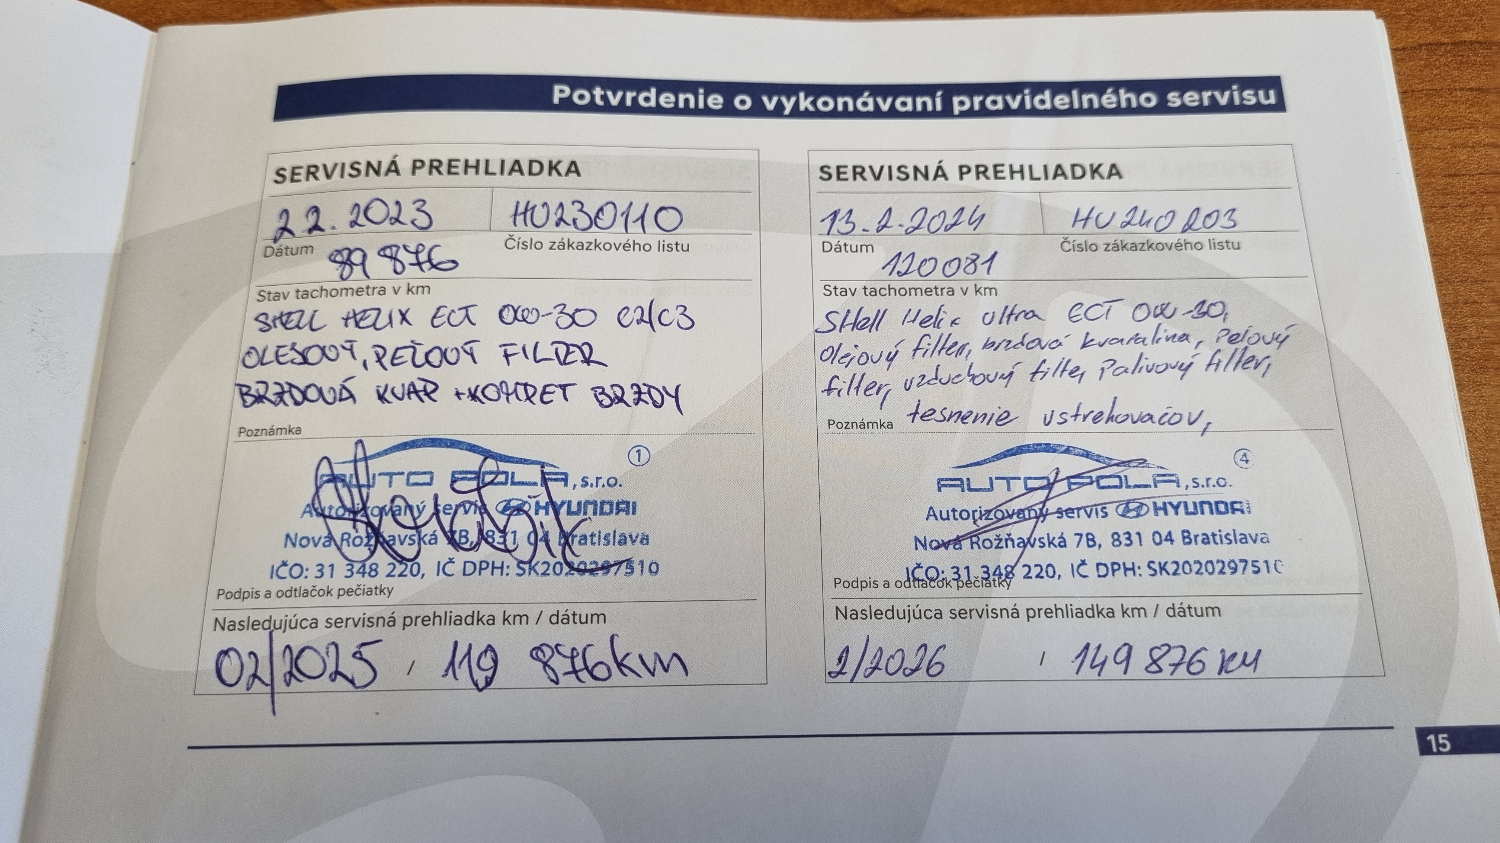 Potvrdenie o vykonávaní pravidelného servisu
SERVISNÁ PREHLIADKA
22.2023
HU230110
Dátum
Číslo zákazkového listu
89 876
Stav tachometra v km
SHELL HELIX ECT 0W-30 C2/C3
OLEJOVÝ, PEĽOVÝ FILTER
BRZDOVÁ KVAP +KOMPET BRZDY
Poznámka
1
AUTO POLA, s.r.o.
Autorizovaný servis HYUNDAI
Nová Rožňavská 7B, 831 04 Bratislava
IČO: 31 348 220, IČ DPH: SK2020297510
Podpis a odtlačok pečiatky
Nasledujúca servisná prehliadka km / dátum
02/2025 / 119 876km
SERVISNÁ PREHLIADKA
13.2.2024
HU240203
Dátum
Číslo zákazkového listu
120081
Stav tachometra v km
Shell Helix ultra ECT 0W-30,
olejový filter, brzdová kvapalina, Peľový
filter, vzduchový filter, Palivový filter,
tesnenie vstrekovačov,
Poznámka
4
AUTO POLA, s.r.o.
Autorizovaný servis HYUNDAI
Nová Rožňavská 7B, 831 04 Bratislava
IČO: 31 348 220, IČ DPH: SK2020297510
Podpis a odtlačok pečiatky
Nasledujúca servisná prehliadka km / dátum
2/2026 / 149 876 KM
15